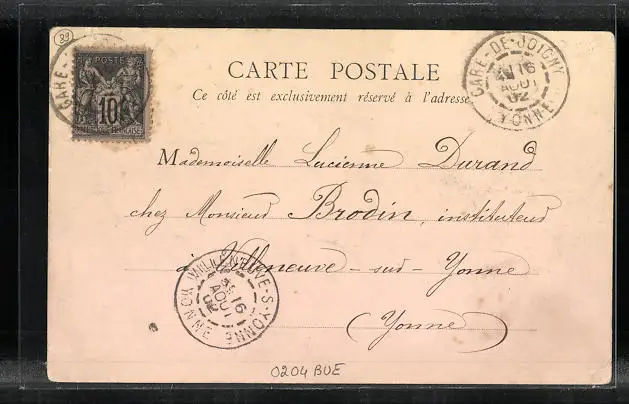 89
POSTE
10
RÉPUBLIQUE FRANÇAISE
GARE-DE-JOIGNY
16
AOUT
02
YONNE
CARTE POSTALE
Ce côté est exclusivement réservé à l'adresse
Mademoiselle Lucienne Durand
chez Monsieur Brodin, instituteur
à Villeneuve-sur-Yonne
(Yonne)
VILLENEUVE-S-YONNE
16
AOUT
02
YONNE
0204 BUE